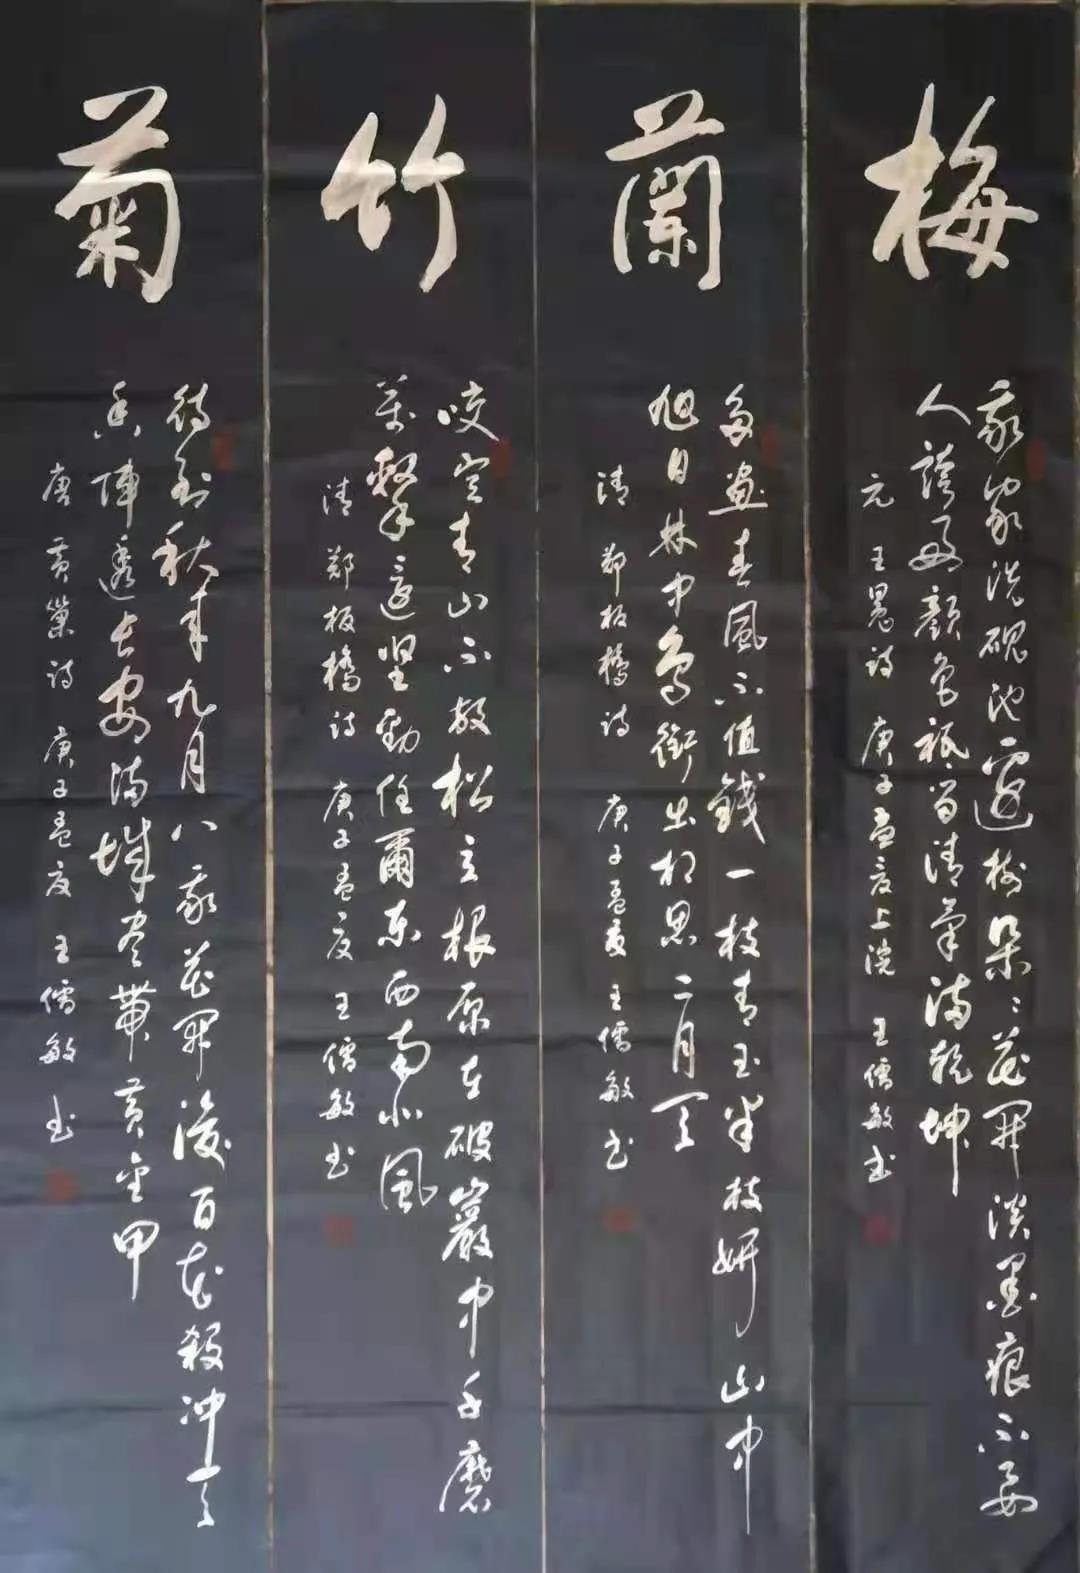 梅
我家洗硯池邊樹朵々花开淡墨痕不要
人誇好顏色祗留清氣满乾坤
元 王冕诗 庚子孟夏上浣 王儒敏书
蘭
多画春風不值錢一枝青玉半枝妍山中
旭日林中鳥銜出相思二月天
清 郑板橋诗 庚子孟夏 王儒敏书
竹
咬定青山不放松立根原在破巖中千磨
萬擊還坚勁任爾東西南北風
清 郑板橋诗 庚子孟夏 王儒敏书
菊
待到秋来九月八我花开後百花殺冲天
香陣透长安满城尽帶黄金甲
唐 黄巢诗 庚子孟夏 王儒敏书